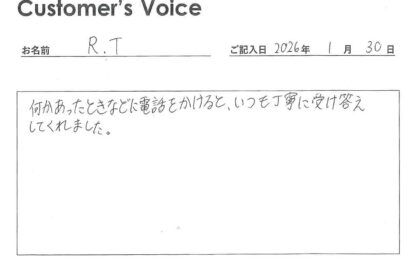 Customer's Voice
お名前 R.T ご記入日 2026年 1月 30日
何かあったときなどに電話をかけると、いつも丁寧に受け答え
してくれました。